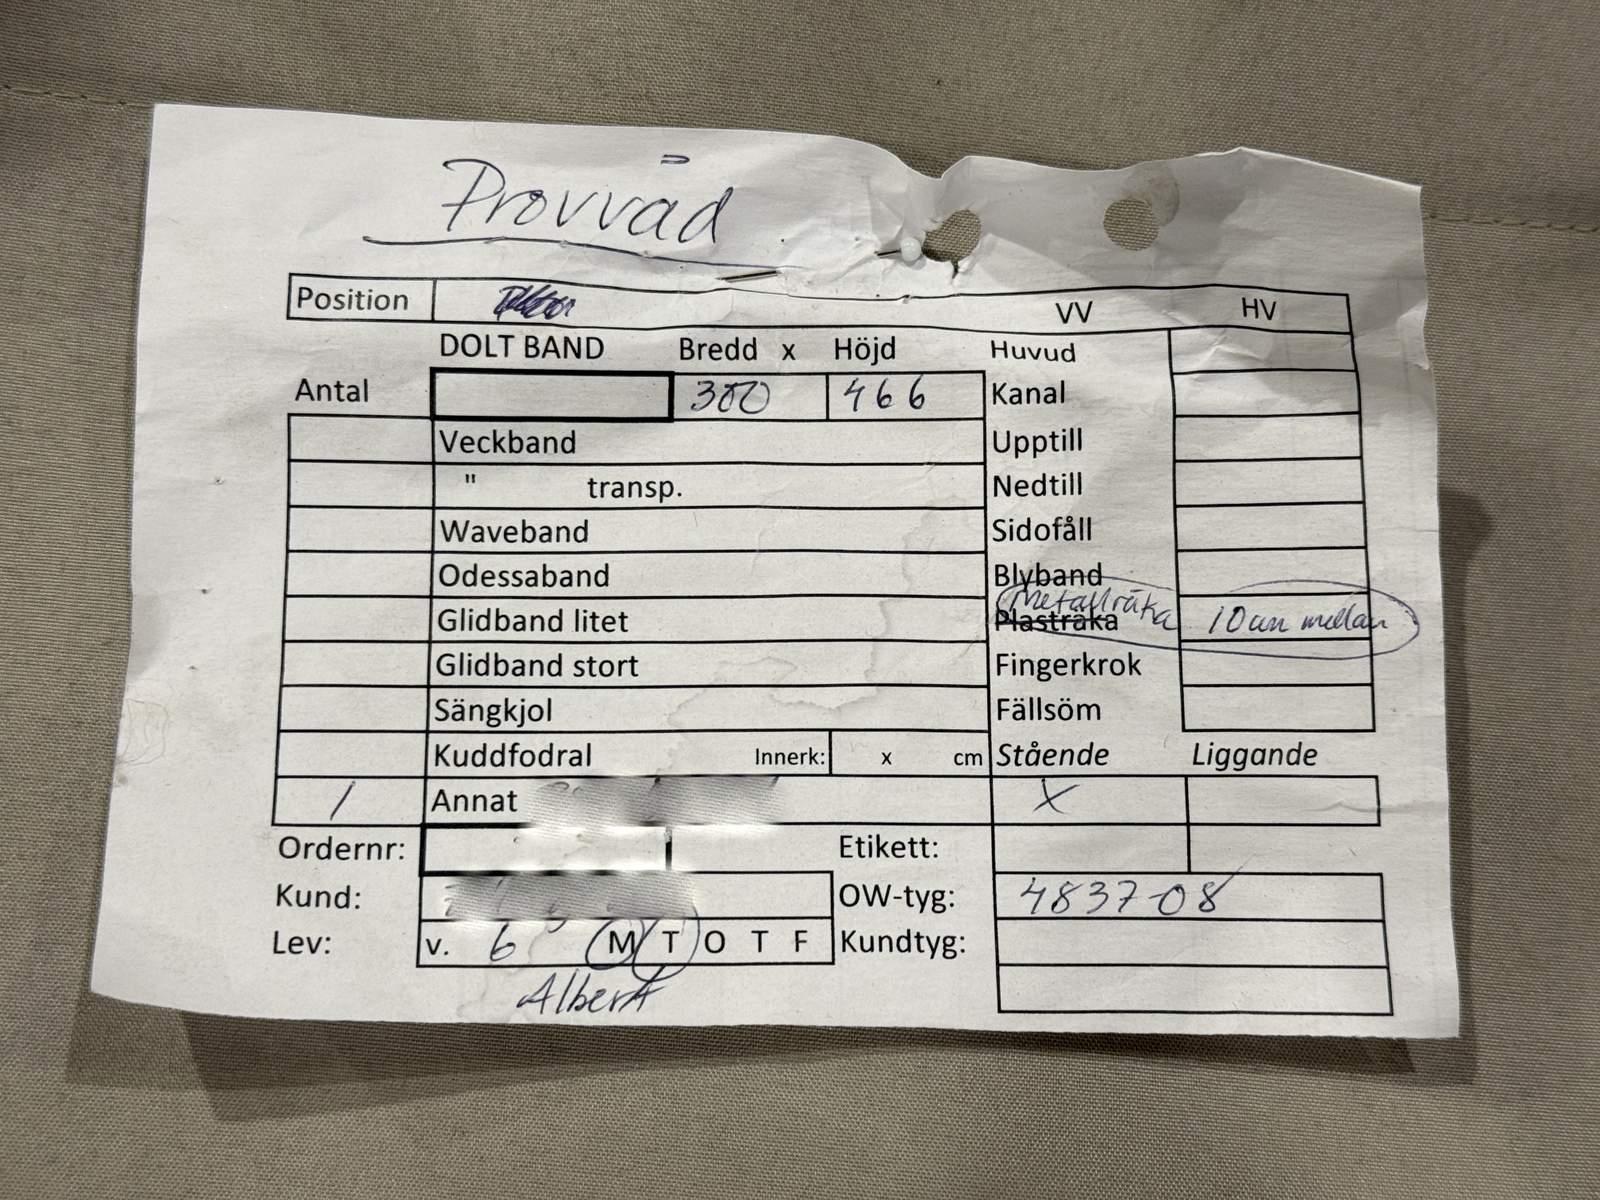 Provvåd
Position VV HV
DOLT BAND Bredd x Höjd Huvud
Antal 300 466 Kanal
Veckband Upptill
" transp. Nedtill
Waveband Sidofåll
Odessaband Blyband
Metallräka
Glidband litet Plasträka 10 cm mellan
Glidband stort Fingerkrok
Sängkjol Fällsöm
Kuddfodral Innerk: x cm Stående Liggande
1 Annat X
Ordernr: Etikett:
Kund: OW-tyg: 4837-08
Lev: v. 6 M T O T F Kundtyg:
Albert